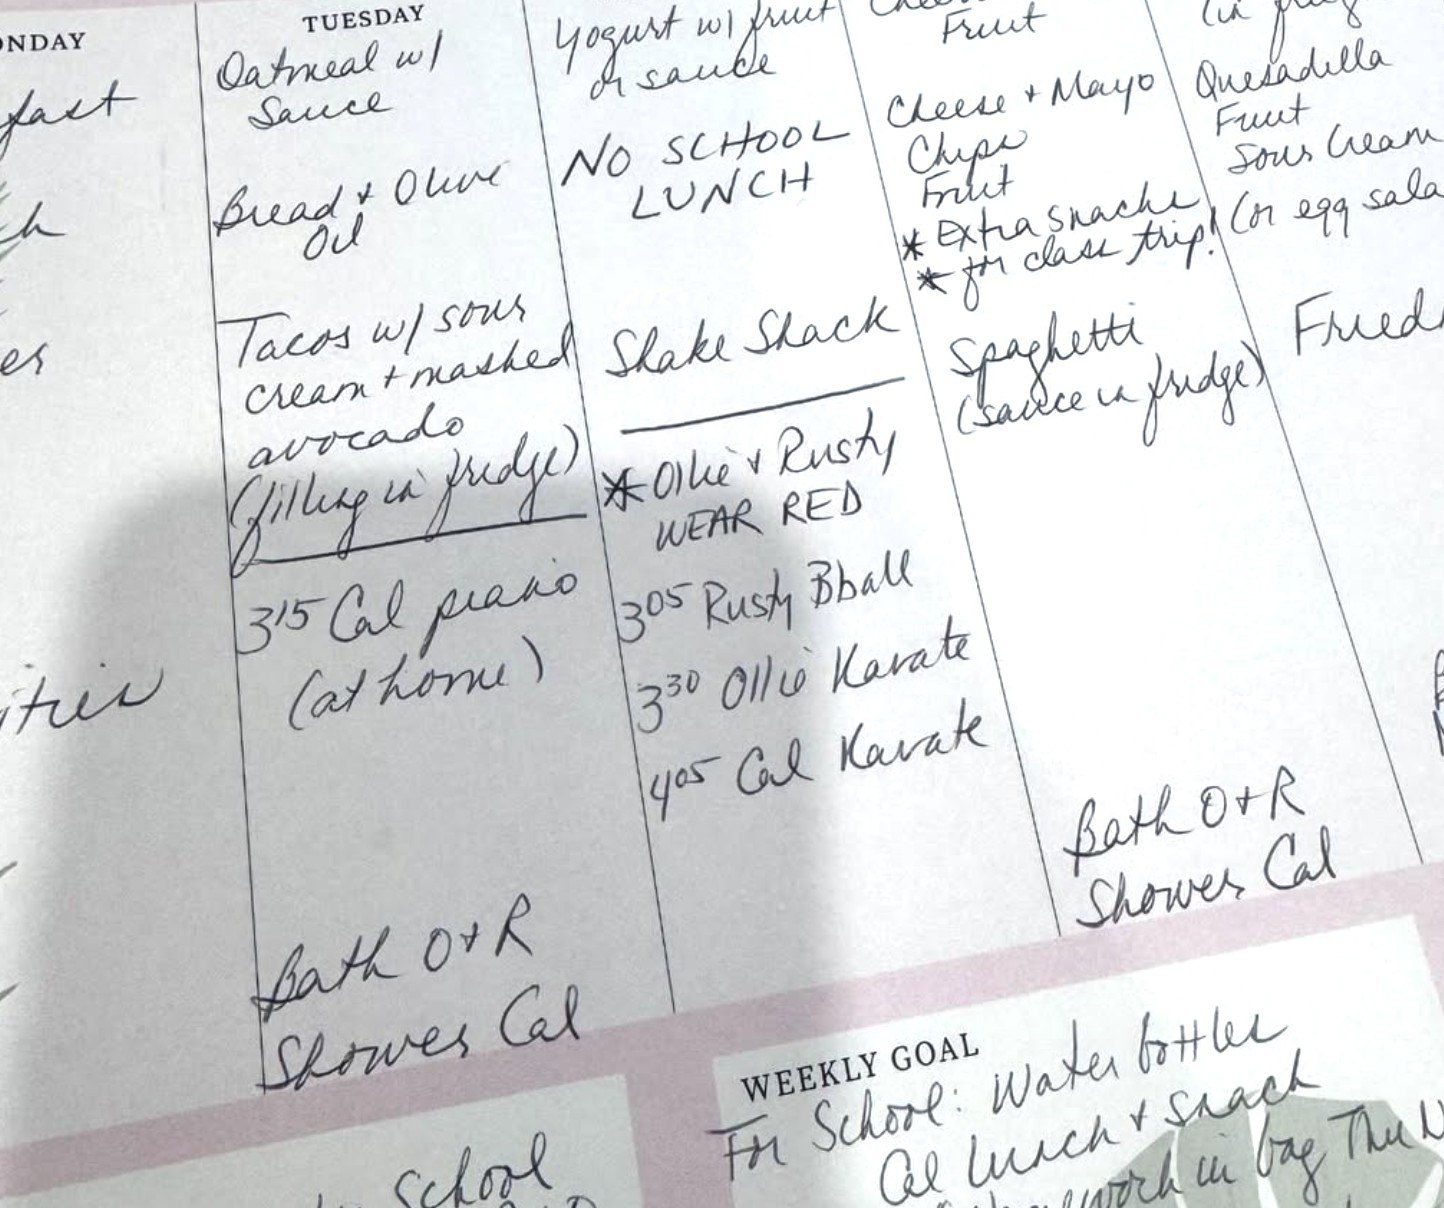 ONDAY
fast
h
es
ities
TUESDAY
Oatmeal w/
Sauce
Bread + Olive
Oil
Tacos w/ sour
cream + mashed
avocado
(filling in fridge)
3¹⁵ Cal piano
(at home)
Bath O+R
Shower Cal
Yogurt w/ fruit
or sauce
NO SCHOOL
LUNCH
Shake Shack
* Ollie + Rusty
WEAR RED
3⁰⁵ Rusty Bball
3³⁰ Ollie Karate
4⁰⁵ Cal Karate
Fruit
Cheese + Mayo
Chips
Fruit
* Extra snacks
* for class trip!
Spaghetti
(sauce in fridge)
Bath O+R
Shower Cal
Quesadilla
Fruit
Sour Cream
(or egg sala
Fried
School
WEEKLY GOAL
For School: Water bottles
Cal lunch + snack
in bag Thu